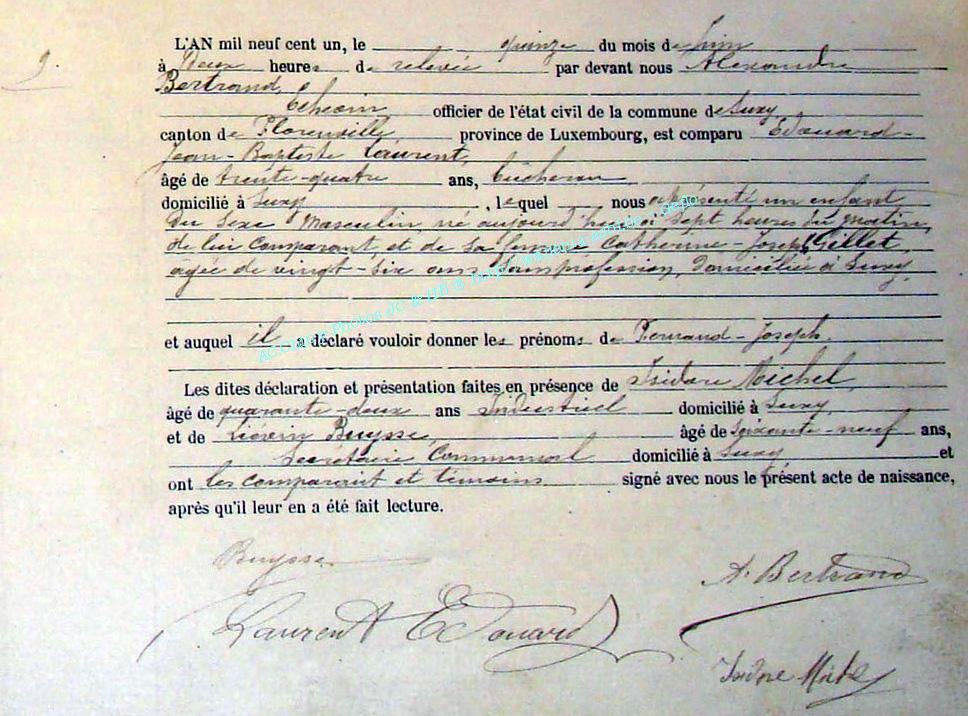 9.
L'AN mil neuf cent un, le quinze du mois de Juin
à Deux heures de relevée par devant nous Alexandre
Bertrand,
Echevin officier de l'état civil de la commune de Suxy
canton de Florenville province de Luxembourg, est comparu Edouard-
Jean-Baptiste Laurent,
âgé de trente-quatre ans, Bûcheron
domicilié à Suxy, lequel nous a présenté un enfant
Du sexe Masculin, né aujourd'hui à Sept heures du matin,
de lui Comparant, et de sa femme Catherine-Joseph Gillet
âgée de vingt-six ans, Sans profession, domiciliée à Suxy,
et auquel il a déclaré vouloir donner les prénoms de Fernand-Joseph.
Les dites déclaration et présentation faites en présence de Isidore Michel,
âgé de quarante-deux ans Industriel domicilié à Suxy,
et de Liévin Buysse, âgé de soixante-neuf ans,
Secrétaire Communal domicilié à Suxy et
ont les comparant et témoins signé avec nous le présent acte de naissance,
après qu'il leur en a été fait lecture.
Buysse
A. Bertrand
Laurent Edouard
Isidore Michel